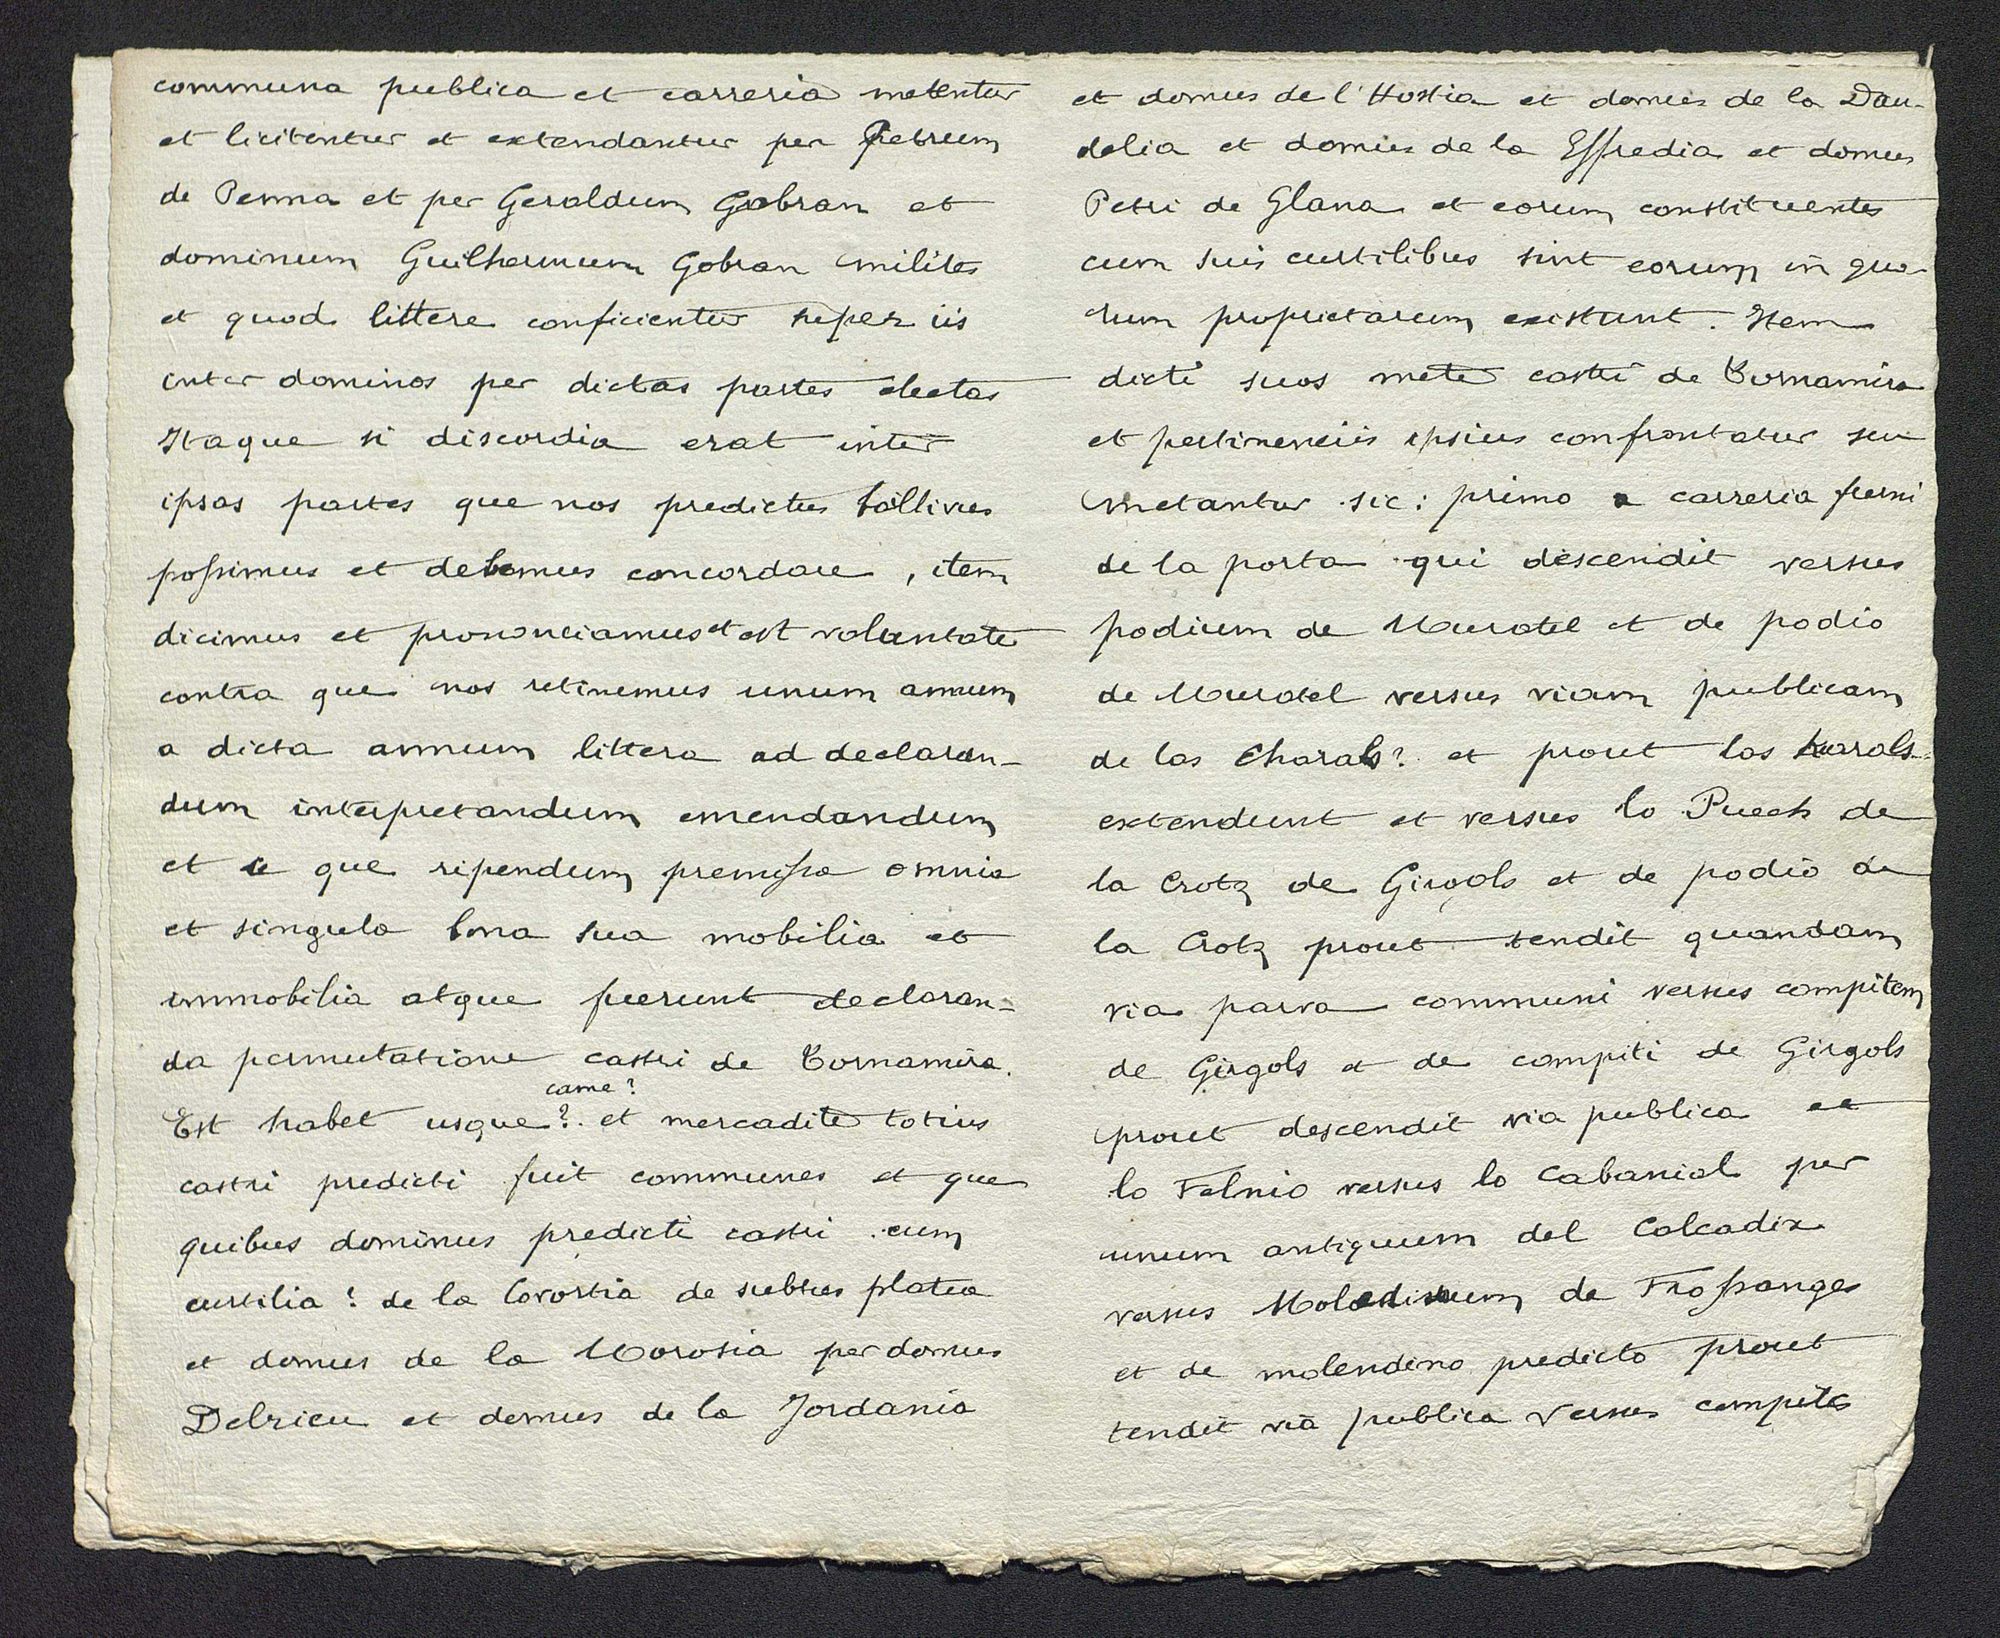 communa publica et carreria metentur
et licitentur et extendantur per Petrum
de Penna et per Geraldum Gobran et
dominum Guilhermum Gobran milites
et quod littere conficientur super iis
inter dominos per dictas partes electas
Itaque si discordia erat inter
ipsas partes que nos predictus ballivus
possimus et debemus concordare, item
dicimus et prononciamus et est voluntate
contra que nos retinemus unum annum
a dicta annum littera ad declaran-
dum interpretandum emendandum
et que ripendum premissa omnia
et singula bona sua mobilia et
immobilia atque fuerunt declaran-
da permutatione castri de Tornamira.
came?
Est habet usque ?. et mercadite totius
castri predicti fuit communes et que
quibus dominus predicti castri cum
curtilia? de la Covortia de subtus platea
et domus de la Morosia per domus
Delrieu et domus de la Jordania
et domus de l'Hostia et domus de la Dau-
delia et domus de la Effredia et domus
Petri de Glana et eorum constituentes
cum suis curtilibus sint eorum in quo-
rum proprietarum existunt. Item
dicti suos mete castri de Tornamira
et pertinenciis ipsius confrontatur seu
metantur sic: primo a carreria furni
de la porta qui descendit versus
podium de Maurotel et de podio
de Maurotel versus viam publicam
de las Charals? et prout las karols-
extendunt et versus lo Puech de
la Crotz de Girgols et de podio de
la Crotz prout tendit quandam
via parva communi versus compitem
de Girgols et de compiti de Girgols
prout descendit via publica et
lo Felnio versus lo Cabanial per
unum antiquum del Calcadix
versus Molendinum de Frossanges
et de molendino predicto prout
tendit via publica versus compites